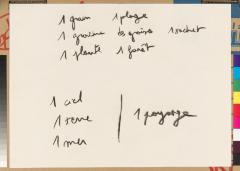 1 grain 1 plage
1 graine des grains 1 sachet
1 plante 1 forêt
1 ciel
1 terre 1 paysage
1 mer